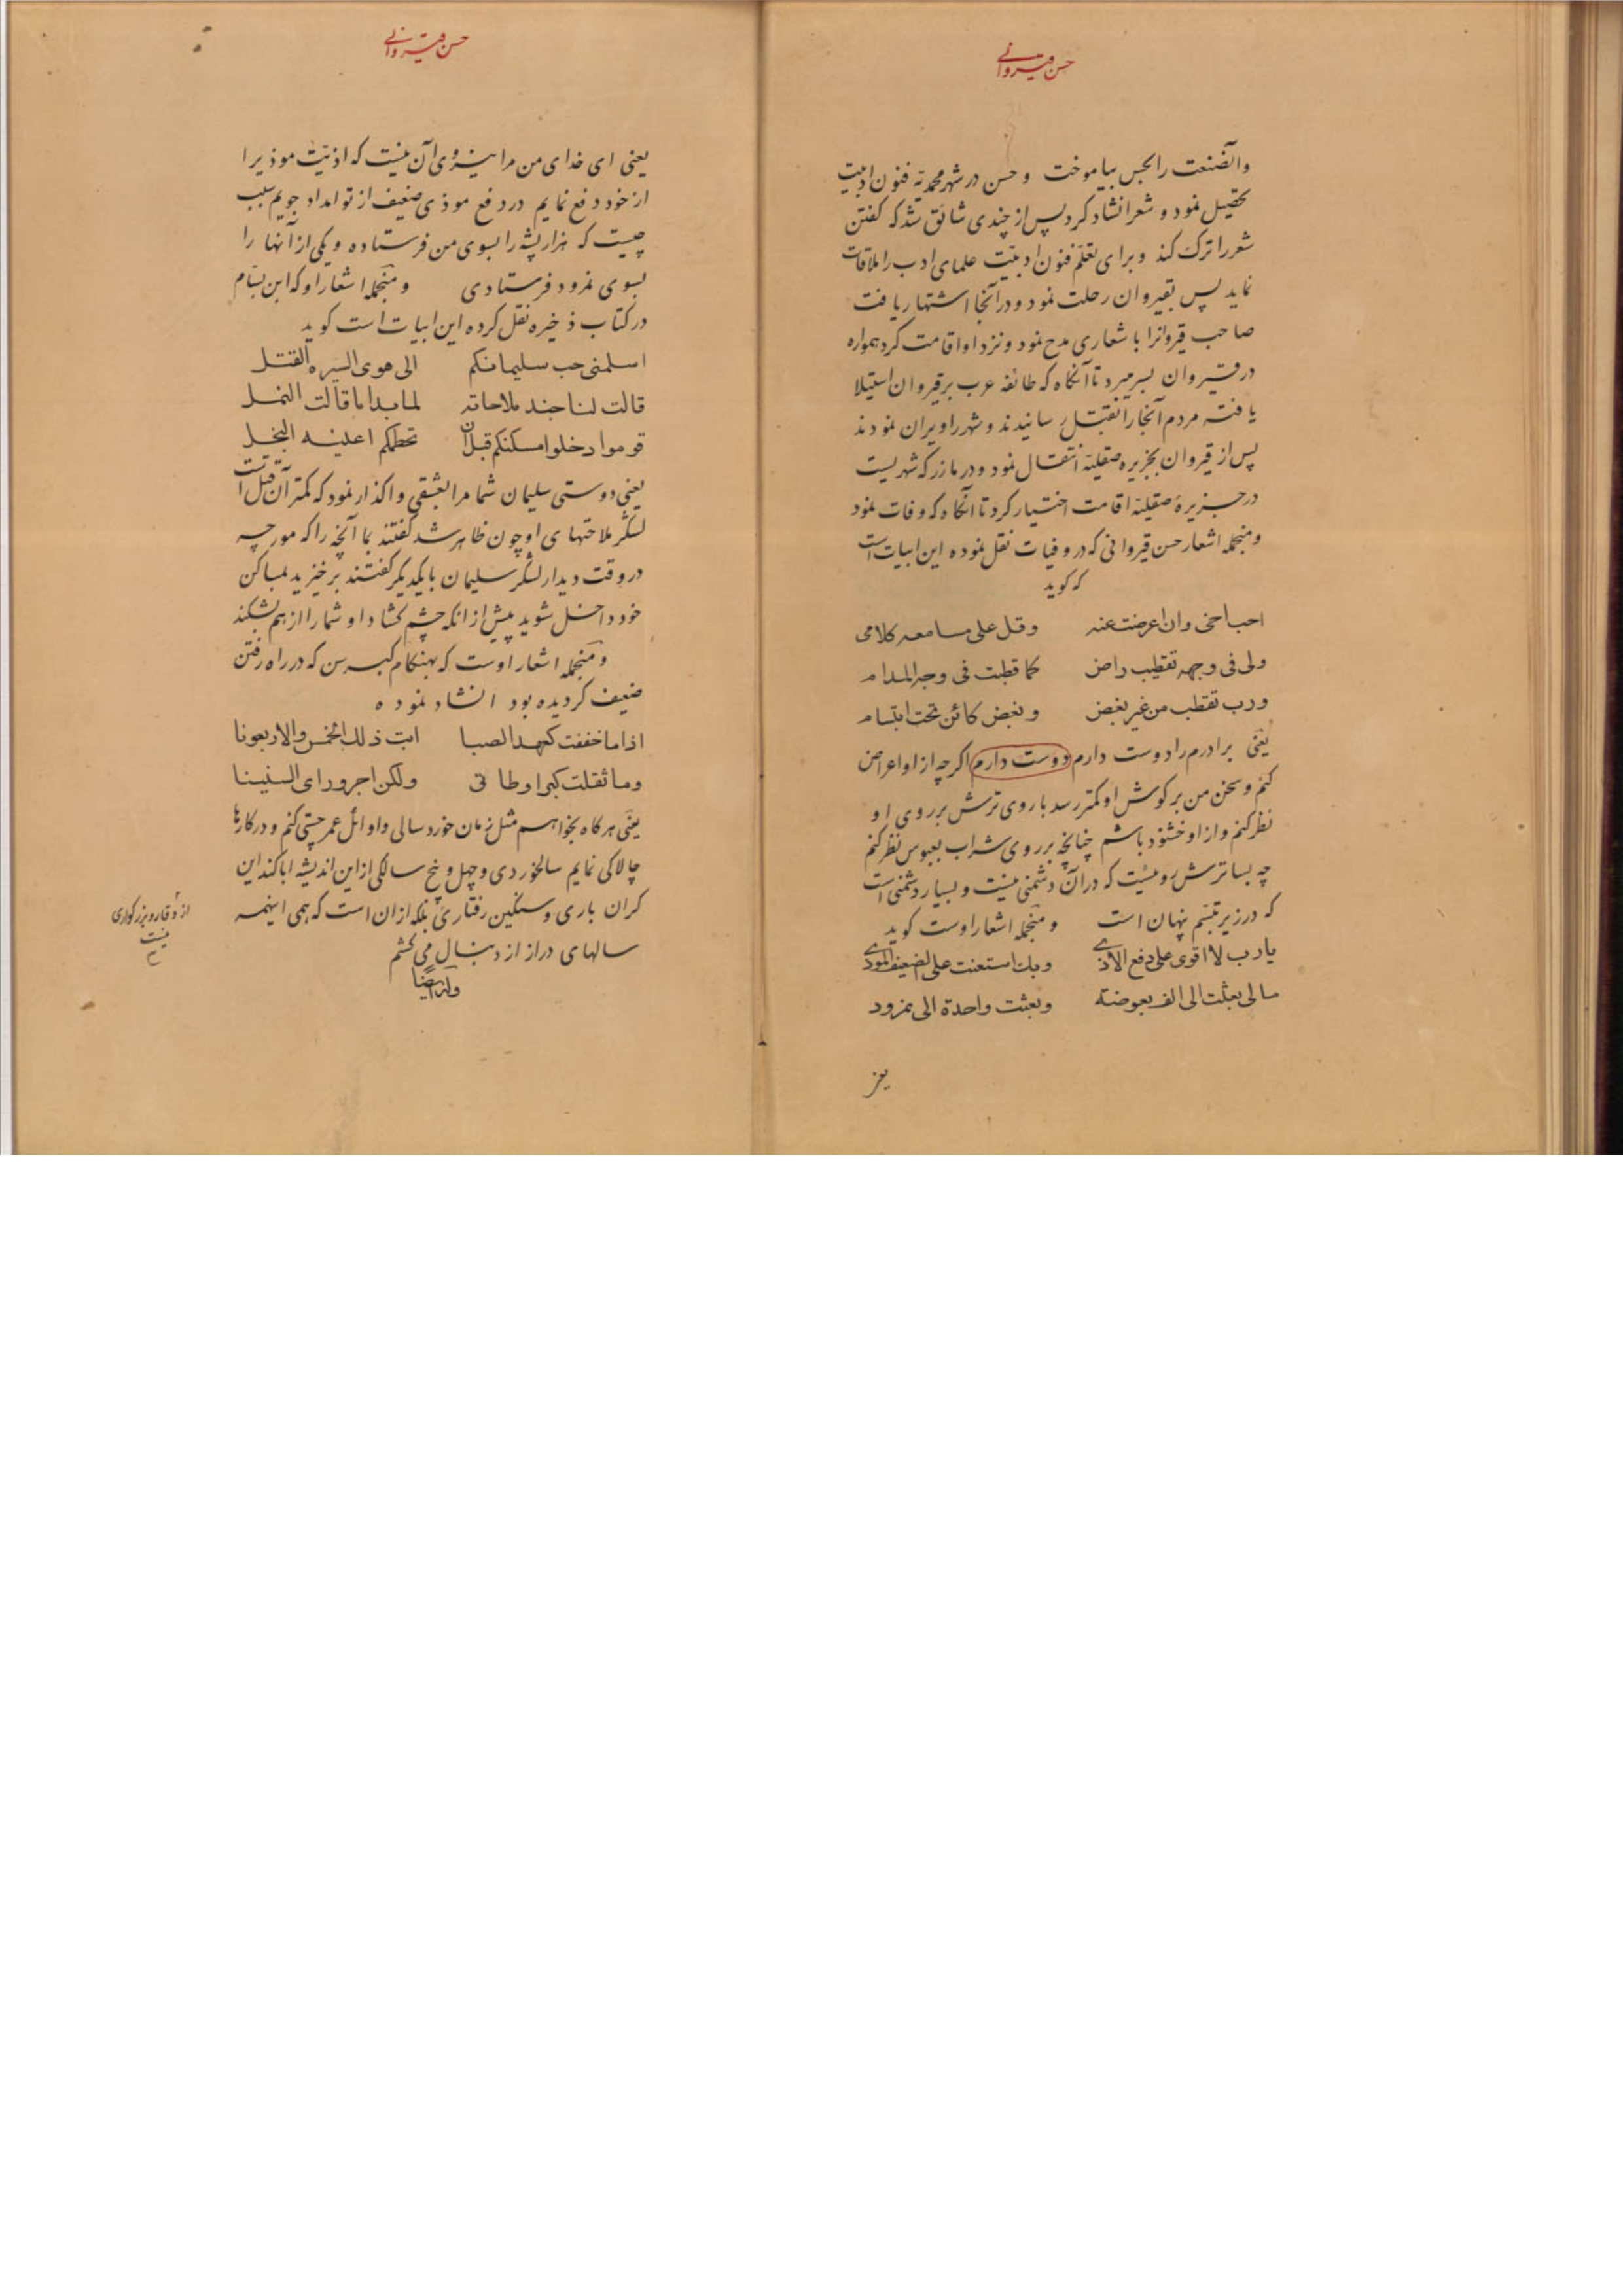 حسن قیروانی
وآنصنعت را بحسن بیاموخت و حسن در شهر محمدیّه فنون ادبیّت
تحصیل نمود و شعر انشاد کرد پس از چندی شائق شد که کفتن
شعر را ترک کند و برای تعلّم فنون ادبیّت علمای ادب را ملاقات
نماید پس بقیروان رحلت نمود و در آنجا اشتهار یافت
صاحب قیروانرا باشعاری مدح نمود و نزد او اقامت کرد همواره
در قیروان بسر میبرد تا آنکاه که طائفه عرب بر قیروان استیلا
یافته مردم آنجا را بقتل رسانیدند و شهر را ویران نمودند
پس از قیروان بجزیره صقلیّه انتقال نمود و در مازر که شهریست
در جزیرۀ صقلیّه اقامت اختیار کرد تا آنکاه که وفات نمود
و منجمله اشعار حسن قیروانی که در وفیات نقل نموده این ابیات است
که کوید
احب اخی وان اعرضت عنه وقل علی مسامعه کلامی
ولی فی وجهه تقطیب راض کما قطبت فی وجه المدام
ورب تقطب من غیر بغض وبغض کائن تحت ابتسام
یعنی برادرم را دوست دارم دوست دارم اکرچه از او اعراض
کنم و سخن من بر کوش او کمتر رسد با روی ترش بر روی او
نظر کنم و از او خشنود باشم چنانچه بر روی شراب بعبوس نظر کنم
چه بسا ترش روئیست که در آن دشمنی نیست و بسیار دشمنی است
که در زیر تبسّم پنهان است و منجمله اشعار اوست کوید
یا رب لا اقوی علی دفع الاذی وبک استعنت علی الضعیف الموذی
مالی بعثت الی الف بعوضة وبعثت واحدة الی نمرود
حسن قیروانی
یعنی ای خدای من مرا نیروی آن نیست که اذیّت موذیرا
از خود دفع نمایم در دفع موذی ضعیف از تو امداد جویم سبب
چیست که هزار پشه را بسوی من فرستاده و یکی از آنها را
بسوی نمرود فرستادی و منجمله اشعار او که ابن بسّام
در کتاب ذخیره نقل کرده این ابیات است کوید
اسلمنی حب سلیمانکم الی هوی ایسره القتل
قالت لنا جند ملاحاته لما بدا ما قالت النمل
قوموا ادخلوا مسکنکم قبل ان تحطمکم اعینه النجل
یعنی دوستی سلیمان شما مرا بعشقی واکذار نمود که کمتر آن قتل است
لشکر ملاحتهای او چون ظاهر شد کفتند بما آنچه را که مورچه
در وقت دیدار لشکر سلیمان با یکدیکر کفتند برخیزید بمساکن
خود داخل شوید پیش از انکه چشم کشاد او شما را از هم بشکند
و منجمله اشعار اوست که بهنکام کبر سن که در راه رفتن
ضعیف کردیده بود انشاد نموده
اذا ما خففت کعهد الصبا ابت ذلک الخمس والاربعونا
وما ثقلت کبرا وطاتی ولکن اجر ورای السنینا
یعنی هر کاه بخواهم مثل زمان خورد سالی و اوائل عمر چستی کنم و در کارها
چالاکی نمایم سالخوردی و چهل و پنج سالکی از این اندیشه ابا کند این
کران باری و سنکین رفتاری بلکه از ان است که همی اینهمه
سالهای دراز از دنبال می کشم
وله ایضا
از وقار و بزرکواری
نیست